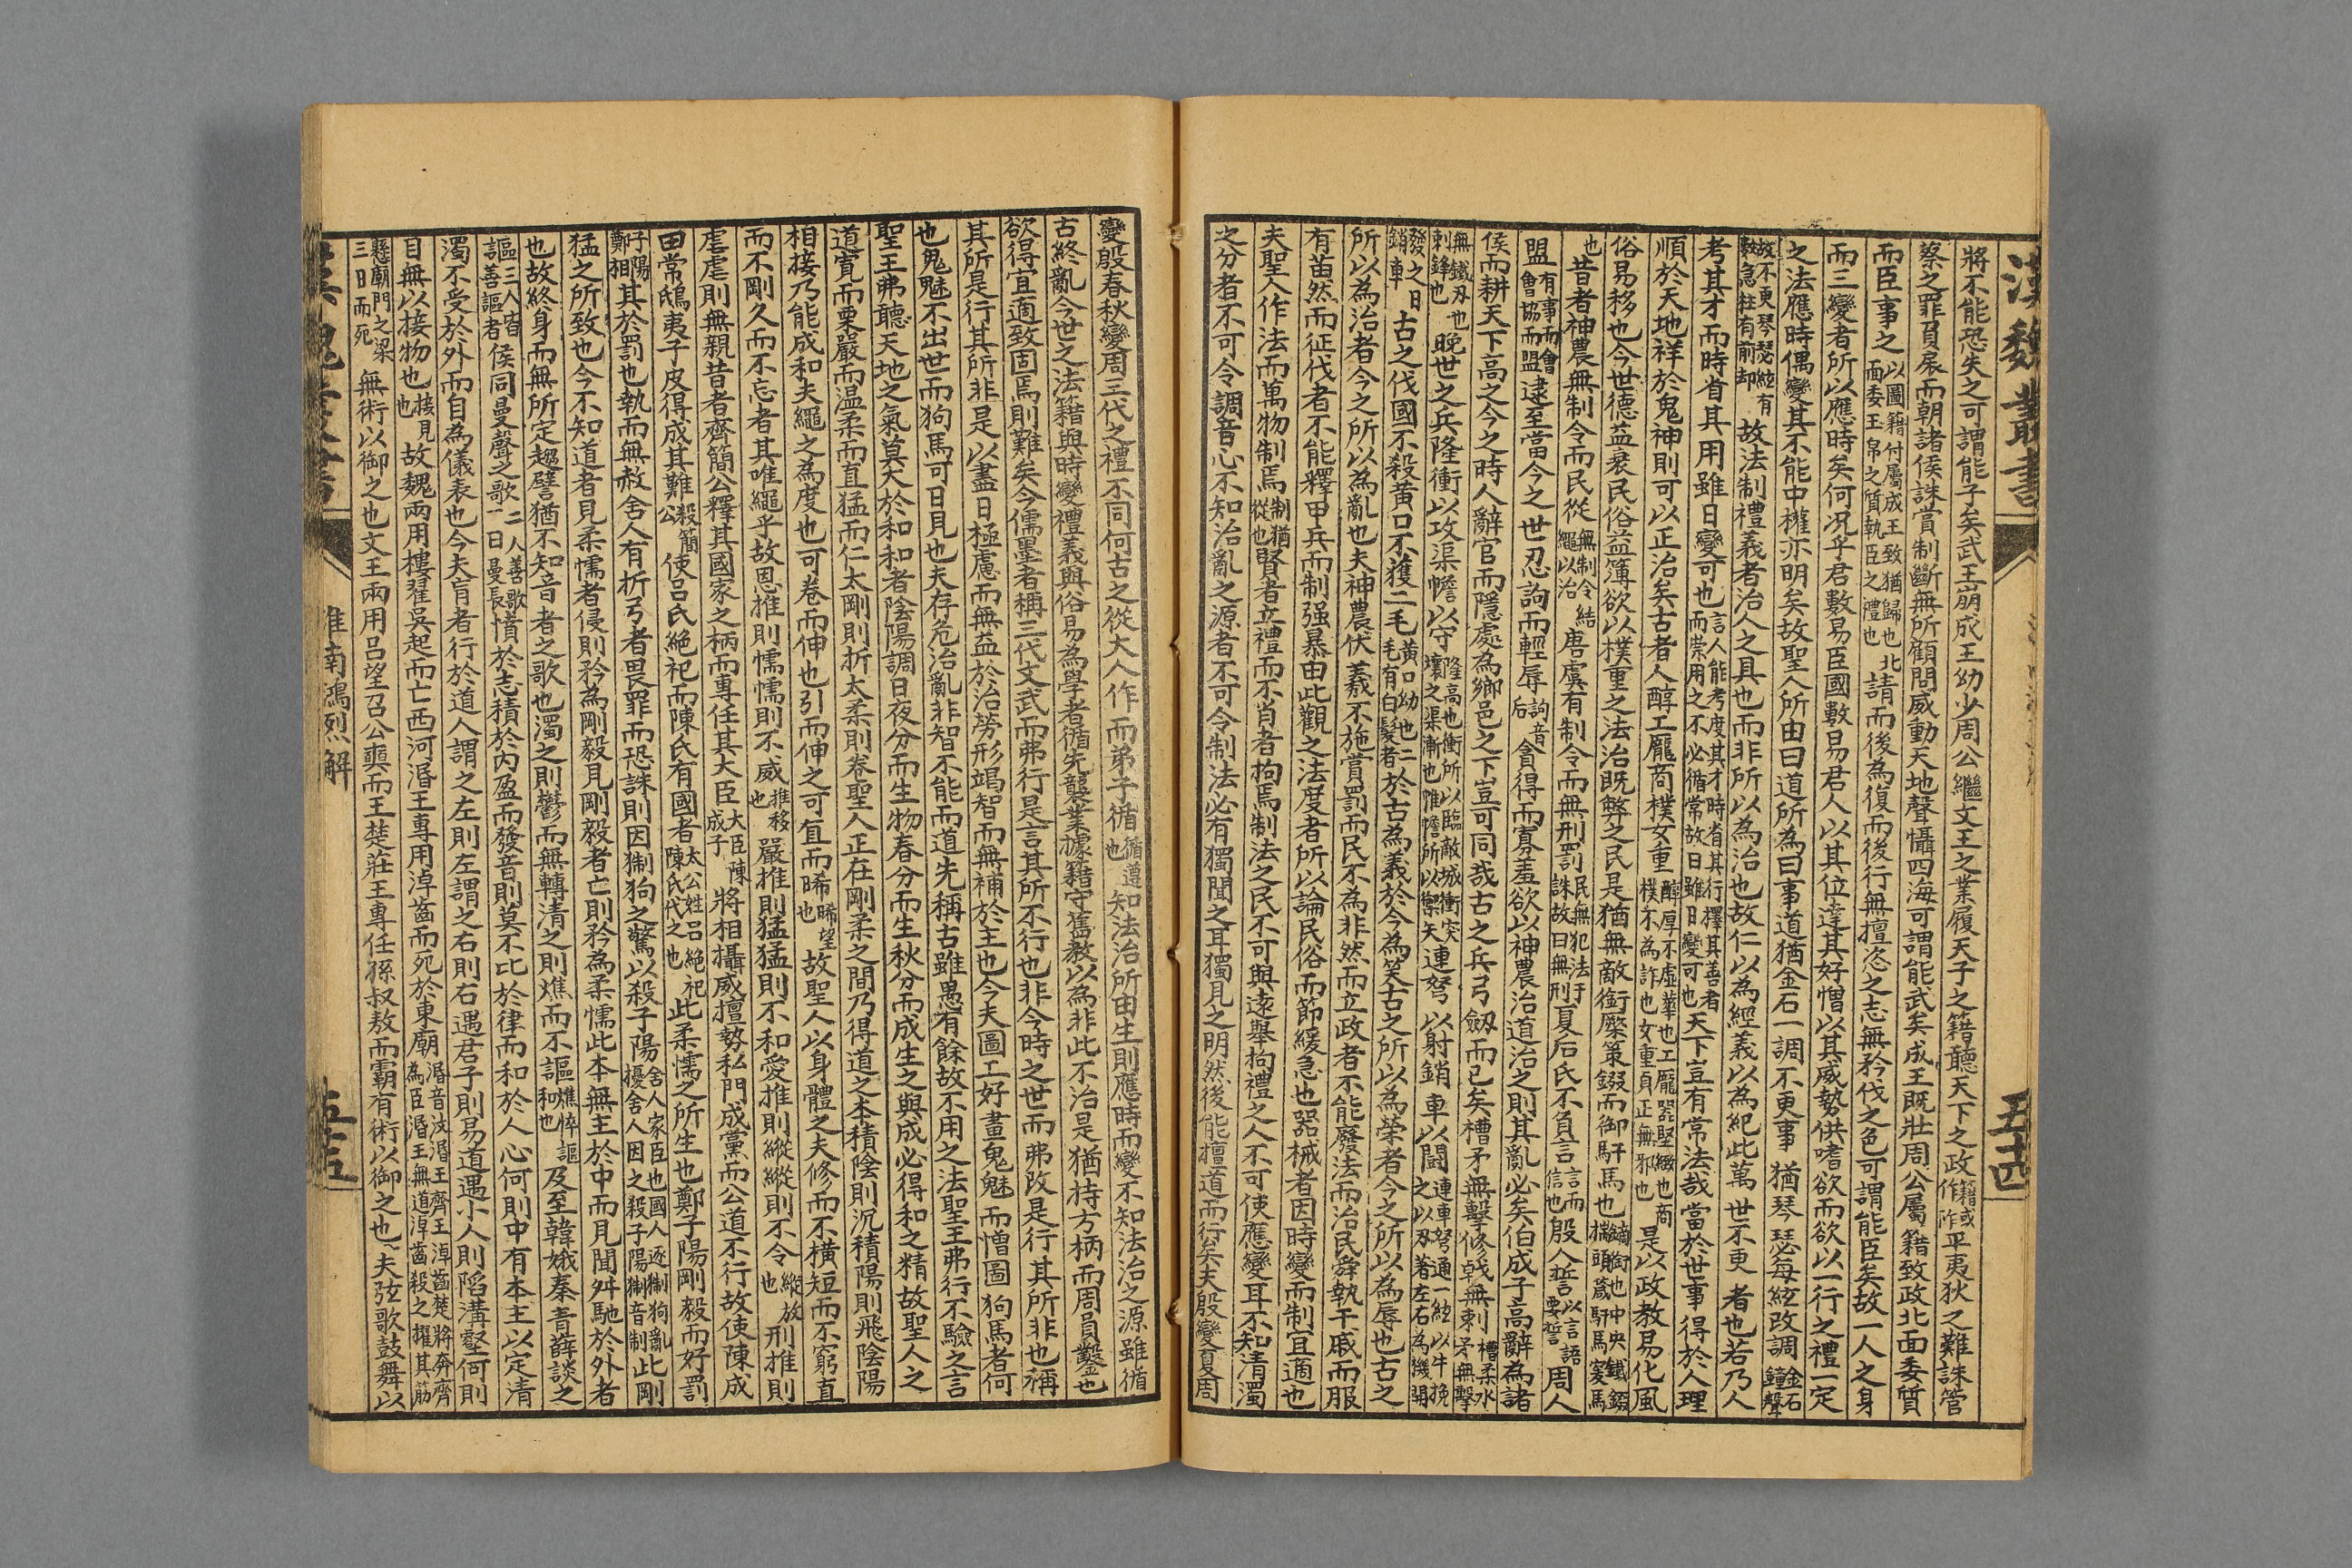 漢魏叢書
五十四
將不能恐失之可謂能子矣武王崩成王幼少周公繼文王之業履天子之籍聽天下之政籍或作阼平夷狄之難誅管
蔡之罪負扆而朝諸侯誅賞制斷無所顧問威動天地聲懾四海可謂能武矣成王既壯周公屬籍致政北面委質
而臣事之以圖籍付屬成王致猶歸也北面委玉帛之質執臣之禮也請而後為復而後行無擅恣之志無矜伐之色可謂能臣矣故一人之身
而三變者所以應時矣何況乎君數易臣國數易君人以其位達其好憎以其威勢供嗜欲而欲以一行之禮一定
之法應時偶變其不能中權亦明矣故聖人所由曰道所為曰事道猶金石一調不更事猶琴瑟每絃改調金石鐘聲
故不更琴瑟絃有數急柱有前却故法制禮義者治人之具也而非所以為治也故仁以為經義以為紀此萬世不更者也若乃人
考其才而時省其用雖日變可也言人能考度其才時省其行擇其善者而崇用之不必循常故曰雖日變可也天下豈有常法哉當於世事得於人理
順於天地祥於鬼神則可以正治矣古者人醇工龐商樸女重醇厚不虛華也工龐器堅緻也商樸不為詐也女重貞正無邪也是以政教易化風
俗易移也今世德益衰民俗益簿欲以樸重之法治既弊之民是猶無敵銜橜策錣而御馯馬也鏑銜也中央鐵錣揣頭箴馯馬突馬
也昔者神農無制令而民從無制令結繩以治唐虞有制令而無刑罰民無犯法于誅故曰無刑夏后氏不負言言而信也殷人誓以言語要誓周人
盟有事而會會協而盟逮至當今之世忍訽而輕辱訽音后貪得而寡羞欲以神農治道治之則其亂必矣伯成子高辭為諸
侯而耕天下高之今之時人辭官而隱處為鄉邑之下豈可同哉古之兵弓劔而已矣槽矛無擊修戟無刺槽柔水矛無擊
無鐵刃也刺鋒也晚世之兵隆衝以攻渠幨以守隆高也衝所以臨敵城衝突壞之渠漸也惟幨所以禦矢連弩以射銷車以鬭連車弩通一絃以牛挽之以刃著左右為機開
發之曰銷車古之伐國不殺黃口不獲二毛黃口幼也二毛有白髮者於古為義於今為笑古之所以為榮者今之所以為辱也古之
所以為治者今之所以為亂也夫神農伏羲不施賞罰而民不為非然而立政者不能廢法而治民舜執干戚而服
有苗然而征伐者不能釋甲兵而制强暴由此觀之法度者所以論民俗而節緩急也器械者因時變而制宜適也
夫聖人作法而萬物制焉制猶從也賢者立禮而不肖者拘焉制法之民不可與遠舉拘禮之人不可使應變耳不知清濁
之分者不可令調音心不知治亂之源者不可令制法必有獨聞之耳獨見之明然後能擅道而行矣夫殷變夏周
變殷春秋變周三代之禮不同何古之從大人作而弟子循循遵也知法治所由生則應時而變不知法治之源雖循
古終亂今世之法籍與時變禮義與俗易為學者循先襲業據籍守舊教以為非此不治是猶持方柄而周員鑿也
欲得宜適致固焉則難矣今儒墨者稱三代文武而弗行是言其所不行也非今時之世而弗改是行其所非也稱
其所是行其所非是以盡日極慮而無益於治勞形竭智而無補於主也今夫圖工好畫鬼魅而憎圖狗馬者何
也鬼魅不出世而狗馬可日見也夫存危治亂非智不能而道先稱古雖愚有餘故不用之法聖王弗行不驗之言
聖王弗聽天地之氣莫大於和和者陰陽調日夜分而生物春分而生秋分而成生之與成必得和之精故聖人之
道寬而栗嚴而温柔而直猛而仁太剛則折太柔則卷聖人正在剛柔之間乃得道之本積陰則沉積陽則飛陰陽
相接乃能成和夫繩之為度也可卷而伸也引而伸之可直而睎睎望也故聖人以身體之夫修而不橫短而不窮直
而不剛久而不忘者其唯繩乎故恩推則懦懦則不威推移也嚴推則猛猛則不和愛推則縱縱則不令縱放也刑推則
虐虐則無親昔者齊簡公釋其國家之柄而專任其大臣大臣陳成子將相攝威擅勢私門成黨而公道不行故使陳成
田常鴟夷子皮得成其難殺簡公使呂氏絕祀而陳氏有國者太公姓呂絕祀陳氏代之也此柔懦之所生也鄭子陽剛毅而好罰
子陽鄭相其於罰也執而無赦舍人有折弓者畏罪而恐誅則因猘狗之驚以殺子陽舍人家臣也國人逐猘狗亂擾舍人因之殺子陽猘音制此剛
猛之所致也今不知道者見柔懦者侵則矜為剛毅見剛毅者亡則矜為柔懦此本無主於中而見聞舛馳於外者
也故終身而無所定趨譬猶不知音者之歌也濁之則鬱而無轉清之則燋而不謳燋悴謳和也及至韓娥秦青薛談之
謳三人皆善謳者侯同曼聲之歌二人善歌一曰曼長憤於志積於內盈而發音則莫不比於律而和於人心何則中有本主以定清
濁不受於外而自為儀表也今夫肓者行於道人謂之左則左謂之右則右遇君子則易道遇小人則陷溝壑何則
目無以接物也接見也故魏兩用樓翟吳起而亡西河湣王專用淖齒而死於東廟湣音汶湣王齊王淖齒楚將奔齊為臣湣王無道淖齒殺之擢其筋
懸廟門之梁三日而死無術以御之也文王兩用呂望召公奭而王楚莊王專任孫叔敖而霸有術以御之也夫弦歌鼓舞以
淮南鴻烈解
五十五